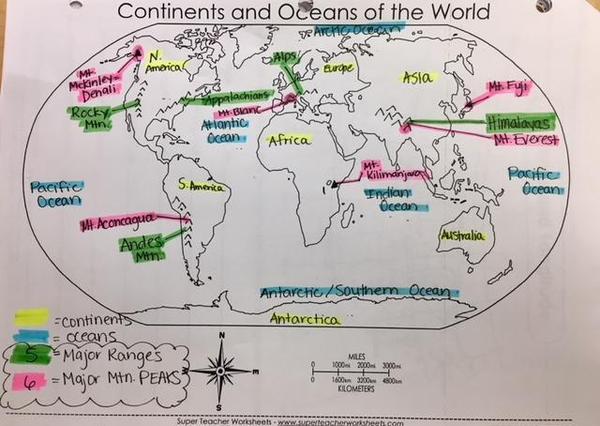 Continents and Oceans of the World
Arctic Ocean
Mt.
McKinley-
Denali
N.
America
Alps
Europe
Asia
Mt. Fuji
Rocky
Mtn.
Appalachians
Mt. Blanc
Atlantic
Ocean
Himalayas
Mt. Everest
Africa
Mt.
Kilimanjaro
Indian
Ocean
Pacific
Ocean
S. America
Pacific
Ocean
Mt. Aconcagua
Andes
Mtn.
Australia
Antarctic/Southern Ocean
Antarctica
= continents
= oceans
5 = Major Ranges
6 = Major Mtn. PEAKS
N
W E
S
MILES
0 1000mi 2000mi 3000mi
0 1600km 3200km 4800km
KILOMETERS
Super Teacher Worksheets - www.superteacherworksheets.com